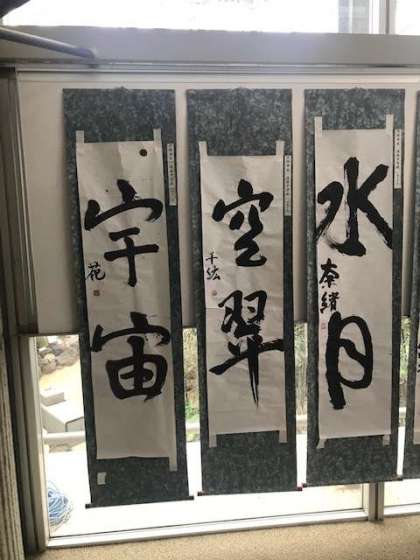 水月
奈緒
空翠
千紘
宇宙
花